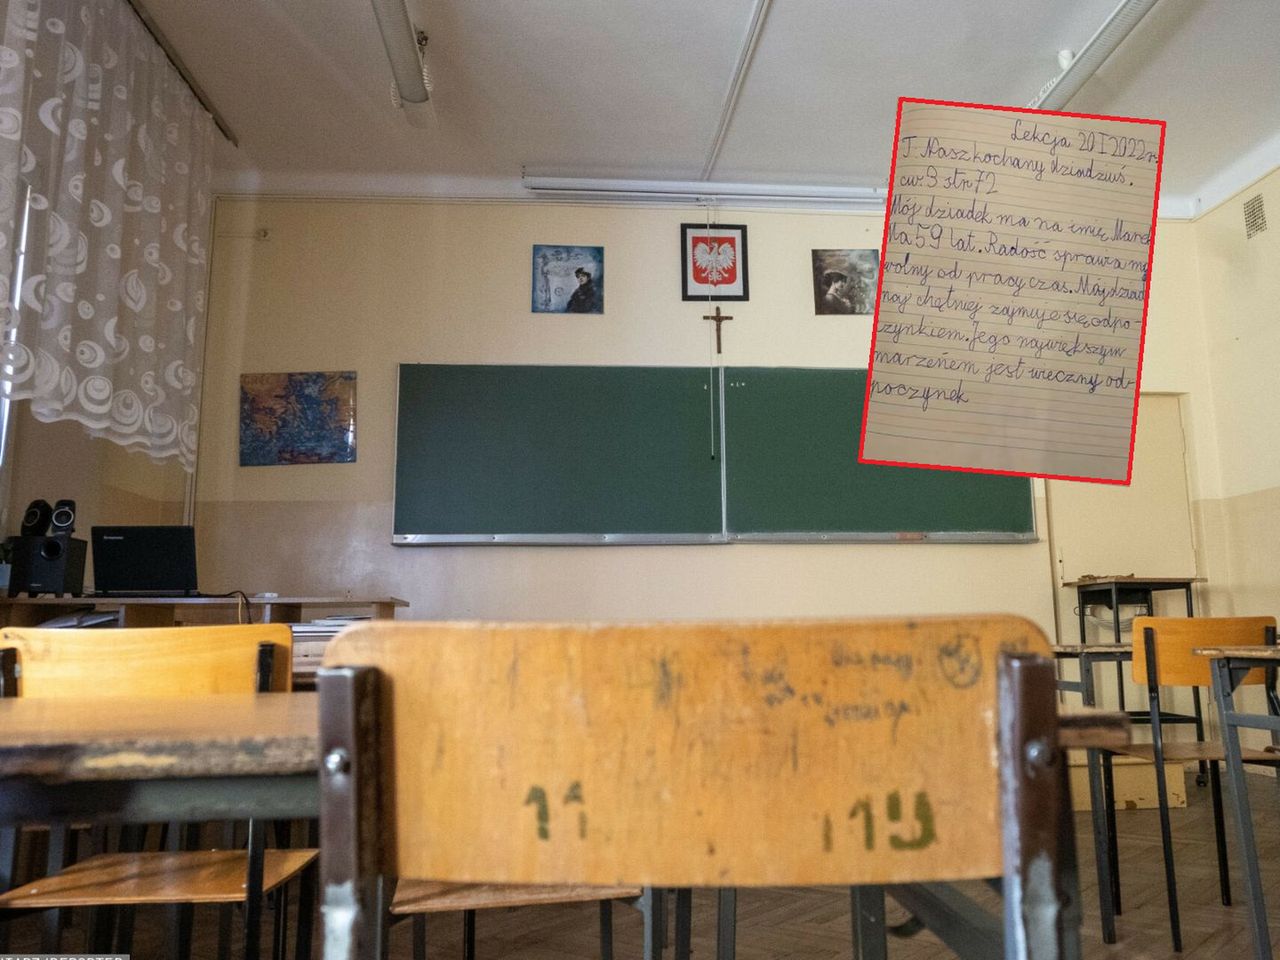 Lekcja 20 I 2022r.
T. Nasz kochany dziadziuś.
ćw. 3 str 72
Mój dziadek ma na imię Marek
Ma 59 lat. Radość sprawia mu
wolny od pracy czas. Mój dziad
naj chętniej zajmuje się odpo-
czynkiem. Jego największym
marzeńem jest wieczny od-
poczynek
lenovo
11
119